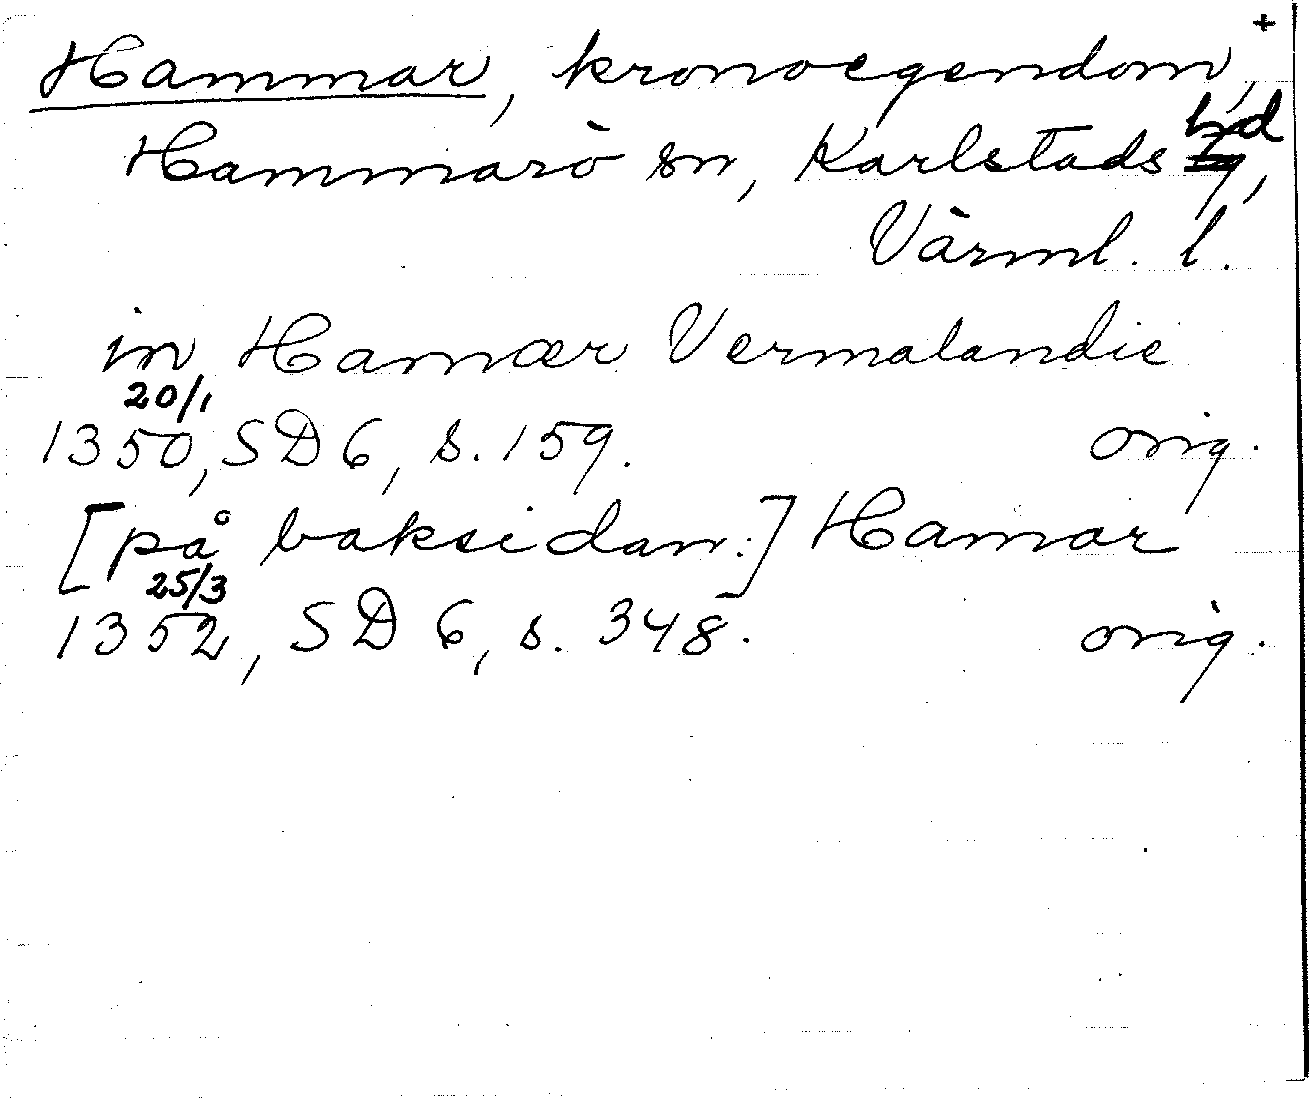 +
Hammar, kronoegendom,
Hammarö sn, Karlstads hd,
Värml. l.
in Hamær Vermalandie
20/1
1350, SD 6, s. 159. orig.
[på baksidan:] Hamar
25/3
1352, SD 6, s. 348. orig.